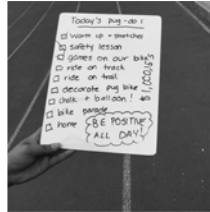 Today's pug-do!
Warm up + stretches
safety lesson
games on our bike
ride on track
ride on trail
decorate pug bike
chalk + balloon!
bike parade
home
BE POSITIVE
ALL DAY!